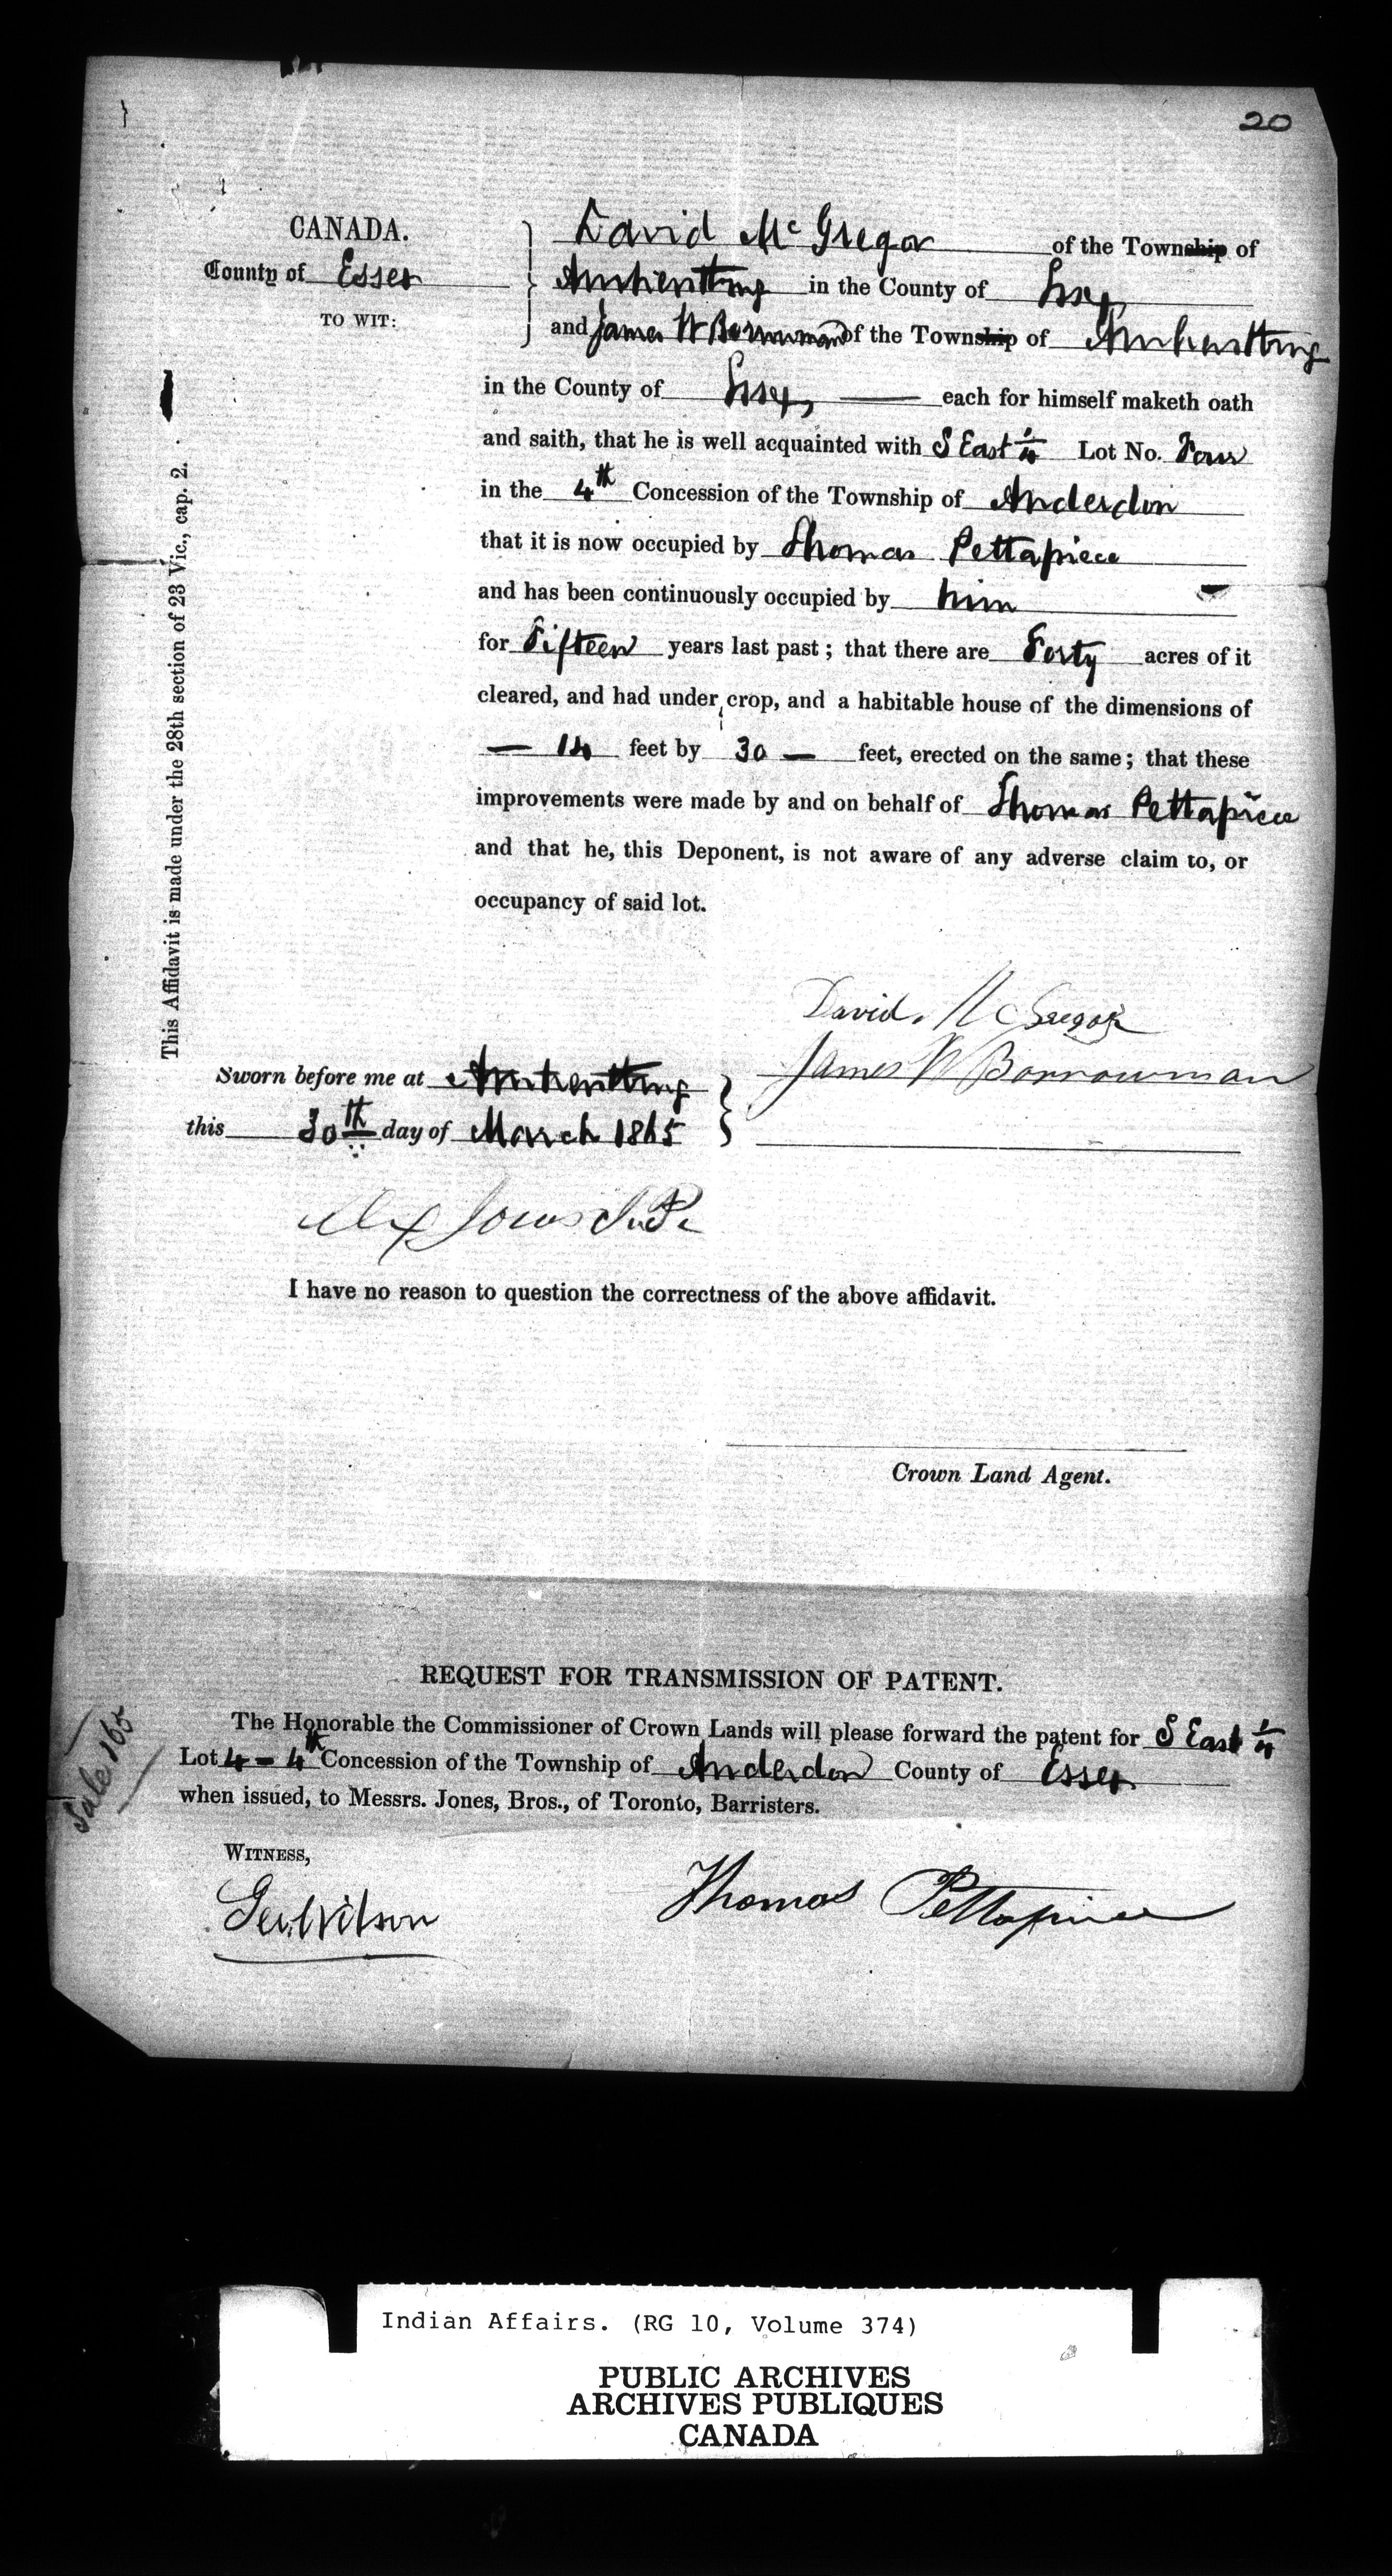 20
CANADA.
County of Essex
TO WIT:
David McGregor of the Township of
Amherstburg in the County of Essex
and James W Borrowman of the Township of Amherstburg
in the County of Essex, — each for himself maketh oath
and saith, that he is well acquainted with S East 1/4 Lot No. Four
in the 4th Concession of the Township of Anderdon
that it is now occupied by Thomas Pettapiece
and has been continuously occupied by him
for Fifteen years last past; that there are Forty acres of it
cleared, and had under crop, and a habitable house of the dimensions of
— 14 feet by 30 — feet, erected on the same; that these
improvements were made by and on behalf of Thomas Pettapiece
and that he, this Deponent, is not aware of any adverse claim to, or
occupancy of said lot.
This Affidavit is made under the 28th section of 23 Vic., cap. 2.
David McGregor
James W Borrowman
Sworn before me at Amherstburg
this 30th day of March 1865
J.P.
I have no reason to question the correctness of the above affidavit.
Crown Land Agent.
REQUEST FOR TRANSMISSION OF PATENT.
The Honorable the Commissioner of Crown Lands will please forward the patent for S East 1/4
Lot 4 - 4th Concession of the Township of Anderdon County of Essex
when issued, to Messrs. Jones, Bros., of Toronto, Barristers.
Sale 165
WITNESS,
Geo Wilson
Thomas Pettapiece
Indian Affairs. (RG 10, Volume 374)
PUBLIC ARCHIVES
ARCHIVES PUBLIQUES
CANADA